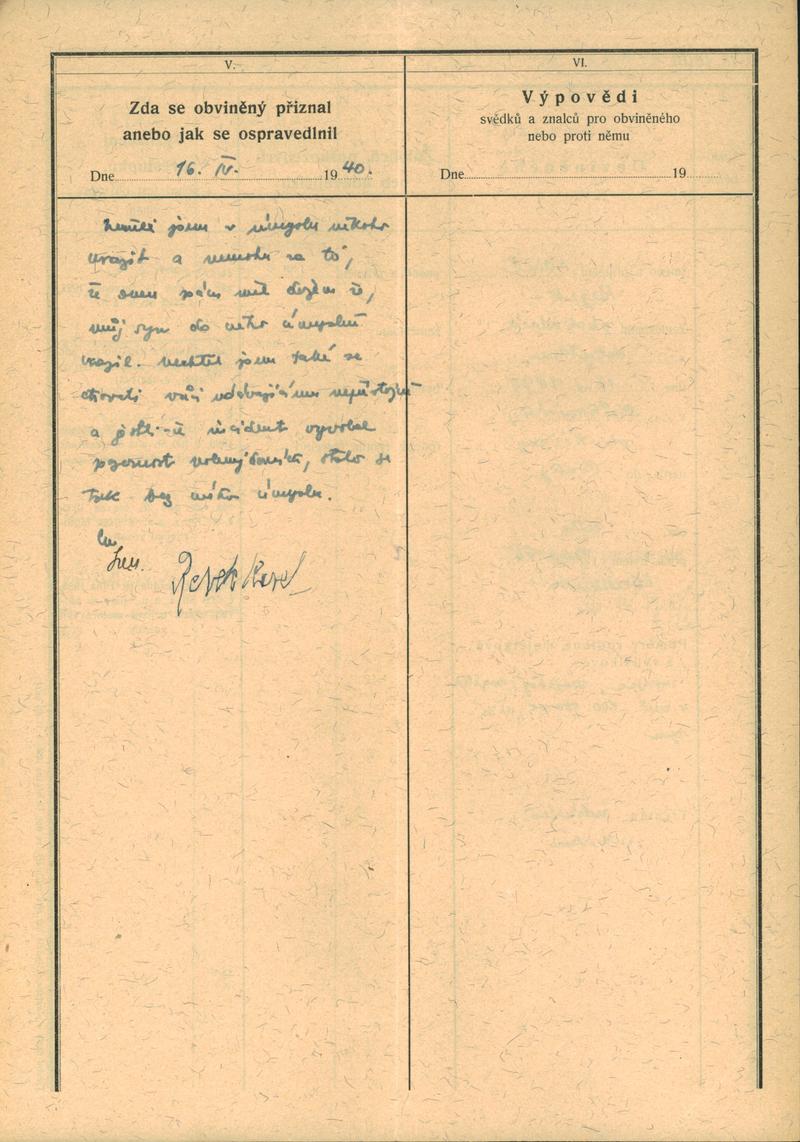 V.
Zda se obviněný přiznal
anebo jak se ospravedlnil
Dne 16. IV. 1940.
Neměl jsem v úmyslu nikoho
urazit a nemohu za to,
že onen pán měl dojem že,
můj syn do něho úmyslně
vrazil. Nechtěl jsem také se
chovati vůči nepřístojně
a jestli-že incident vyvolal
pozornost, stalo se
tak bez mého úmyslu.
Karel
VI.
Výpovědi
svědků a znalců pro obviněného
nebo proti němu
Dne 19